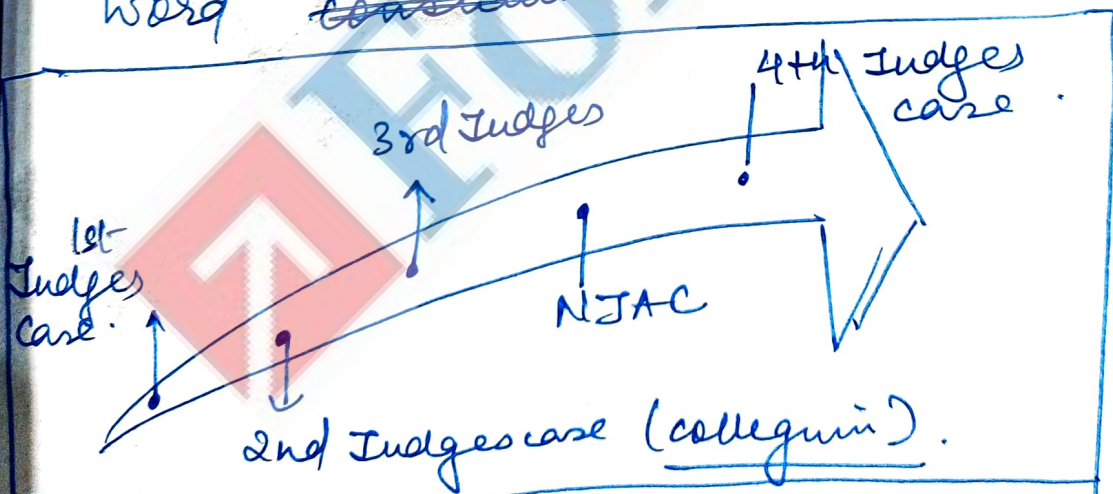 word
4th Judges
case.
3rd Judges
1st
Judges
case.
NJAC
2nd Judges case (colleguim).